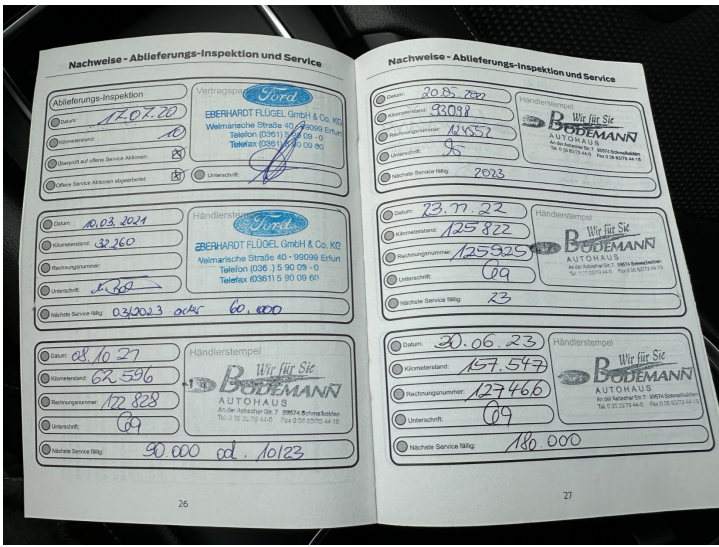 Nachweise - Ablieferungs-Inspektion und Service
Ablieferungs-Inspektion
Datum: 17.07.20
Kilometerstand: 10
Überprüft auf offene Service Aktionen:
Offene Service Aktionen abgearbeitet:
Ford
EBERHARDT FLÜGEL GmbH & Co. KG
Weimarische Straße 40 · 99099 Erfurt
Telefon (0361) 5 90 09 - 0
Telefax (0361) 5 90 09 60
Unterschrift:
Datum: 10.03.2021
Kilometerstand: 32 260
Rechnungsnummer:
Unterschrift:
Nächste Service fällig: 03/2023 oder 60.000
Händlerstempel
Ford
EBERHARDT FLÜGEL GmbH & Co. KG
Weimarische Straße 40 - 99099 Erfurt
Telefon (036.) 5 90 09 - 0
Telefax (0361) 5 90 09 60
Datum: 08.10 21
Kilometerstand: 62 596
Rechnungsnummer: 122 828
Unterschrift:
Nächste Service fällig: 90.000 od. 10/23
Händlerstempel
Wir für Sie
BODEMANN
AUTOHAUS
An der Asbacher Str. 7 98574 Schmalkalden
26
Nachweise - Ablieferungs-Inspektion und Service
Datum: 20.05.2022
Kilometerstand: 93098
Rechnungsnummer: 124552
Unterschrift:
Nächste Service fällig: 2023
Händlerstempel
Wir für Sie
BODEMANN
AUTOHAUS
An der Asbacher Str. 7 98574 Schmalkalden
Tel. 0 36 83/79 44-0 Fax 0 36 83/79 44-15
Datum: 23.11.22
Kilometerstand: 125 822
Rechnungsnummer: 125925
Unterschrift:
Nächste Service fällig: 23
Händlerstempel
Wir für Sie
BODEMANN
AUTOHAUS
An der Asbacher Str. 7 98574 Schmalkalden
Tel. 0 36 83/79 44-0 Fax 0 36 83/79 44-15
Datum: 30.06.23
Kilometerstand: 157.547
Rechnungsnummer: 127466
Unterschrift:
Nächste Service fällig: 180.000
Händlerstempel
Wir für Sie
BODEMANN
AUTOHAUS
An der Asbacher Str. 7 98574 Schmalkalden
Tel. 0 36 83/79 44-0 Fax 0 36 83/79 44-15
27